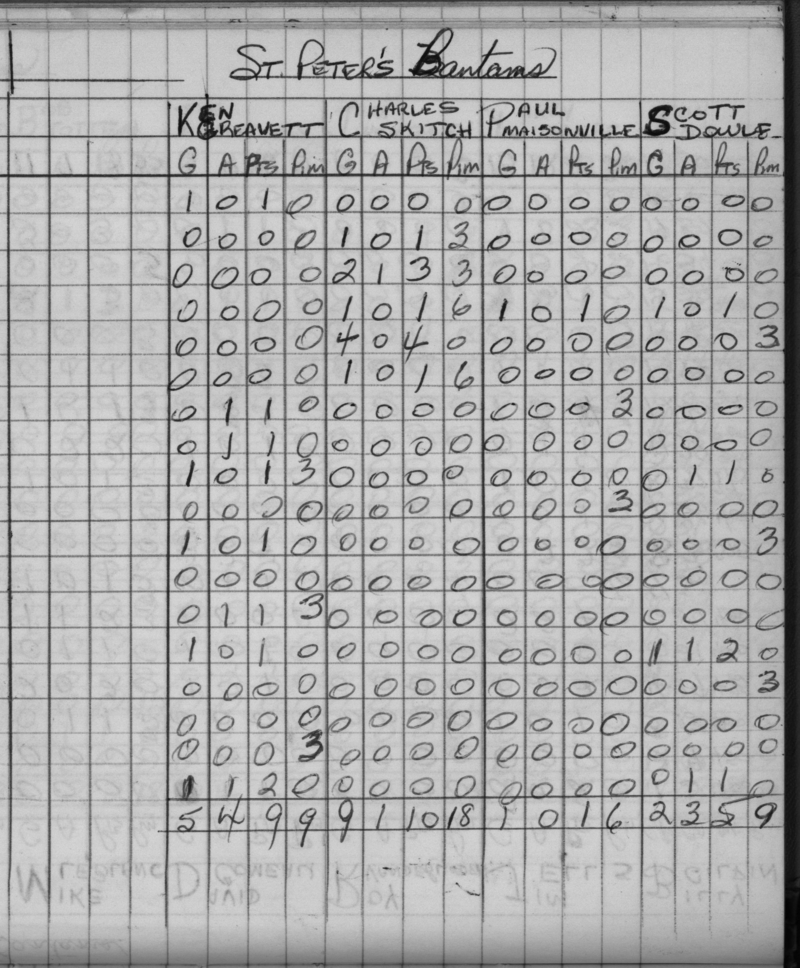 ST. PETER'S Bantams
KEN GREAVETT CHARLES SKITCH PAUL MAISONVILLE SCOTT DOWLE
G A Pts Pim G A Pts Pim G A Pts Pim G A Pts Pim
1 0 1 0 0 0 0 0 0 0 0 0 0 0 0 0
0 0 0 0 1 0 1 3 0 0 0 0 0 0 0 0
0 0 0 0 2 1 3 3 0 0 0 0 0 0 0 0
0 0 0 0 1 0 1 6 1 0 1 0 1 0 1 0
0 0 0 0 4 0 4 0 0 0 0 0 0 0 0 3
0 0 0 0 1 0 1 6 0 0 0 0 0 0 0 0
0 1 1 0 0 0 0 0 0 0 0 3 0 0 0 0
0 1 1 0 0 0 0 0 0 0 0 0 0 0 0 0
1 0 1 3 0 0 0 0 0 0 0 0 0 1 1 0
0 0 0 0 0 0 0 0 0 0 0 3 0 0 0 0
1 0 1 0 0 0 0 0 0 0 0 0 0 0 0 3
0 0 0 0 0 0 0 0 0 0 0 0 0 0 0 0
0 1 1 3 0 0 0 0 0 0 0 0 0 0 0 0
1 0 1 0 0 0 0 0 0 0 0 0 1 1 2 0
0 0 0 0 0 0 0 0 0 0 0 0 0 0 0 3
0 0 0 0 0 0 0 0 0 0 0 0 0 0 0 0
0 0 0 3 0 0 0 0 0 0 0 0 0 0 0 0
1 1 2 0 0 0 0 0 0 0 0 0 0 1 1 0
5 4 9 9 9 1 10 18 1 0 1 6 2 3 5 9